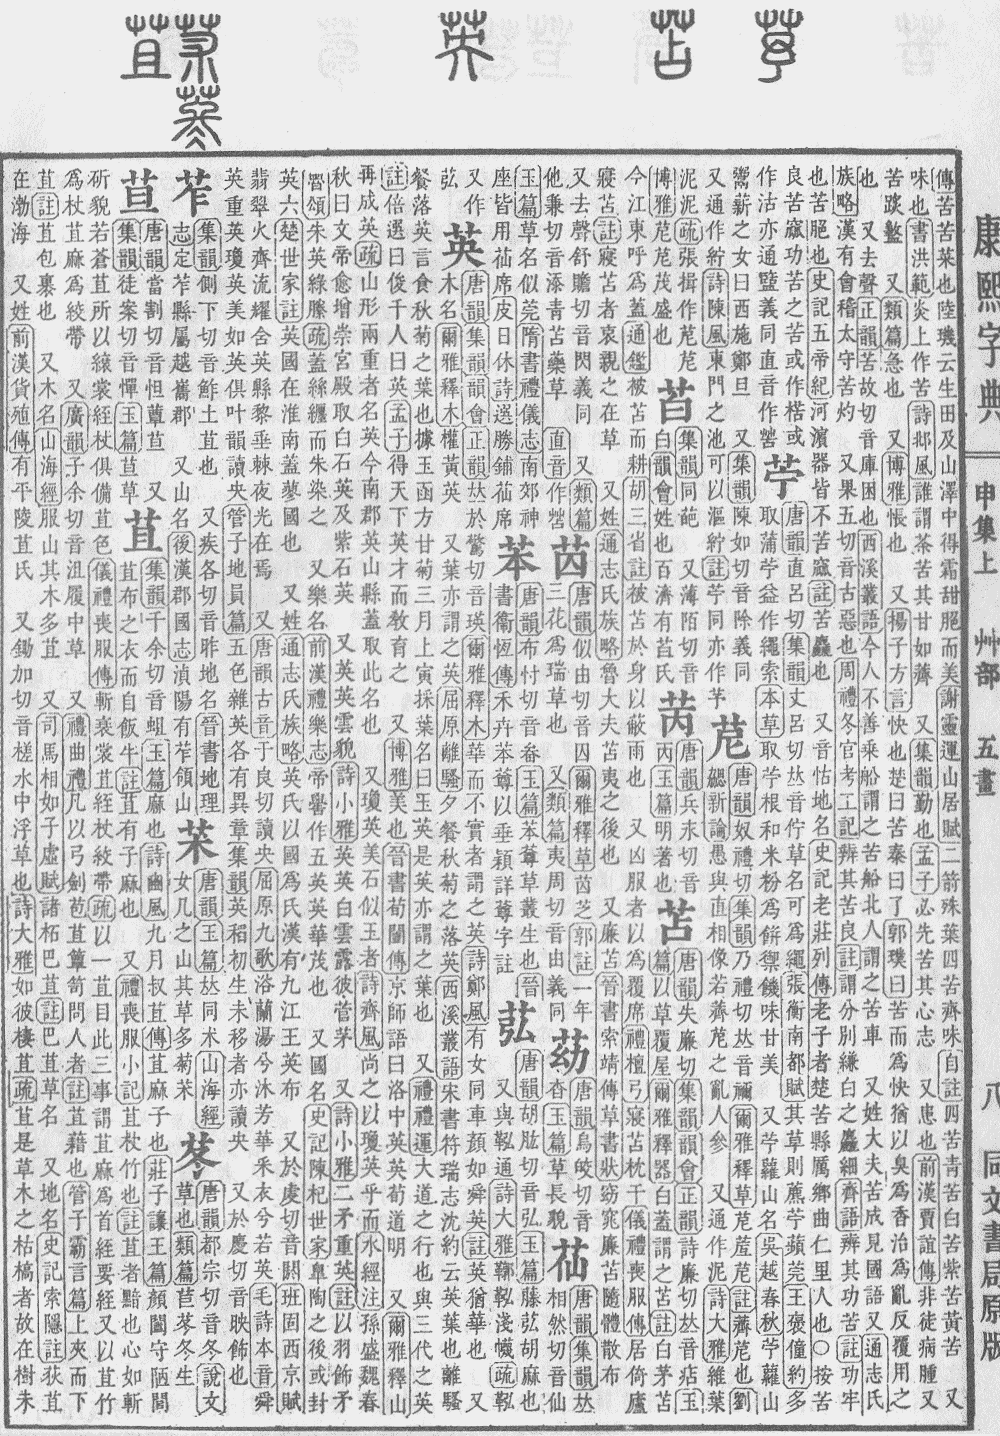 康熙字典 申集上 艸部 五畫 八 同文書局原版
傳苦苦菜也陸璣云生田及山澤中得霜甜脆而美謝靈運山居賦二箭殊葉四苦齊味自註四苦青苦白苦紫苦黃苦 又
味也書洪範炎上作苦詩邶風誰謂荼苦其甘如薺 又集韻勤也孟子必先苦其心志 又患也前漢賈誼傳非徒病腫又
苦盭 又類篇急也 又博雅悵也 又揚子方言快也楚曰苦秦曰了郭璞曰苦而爲快猶以臭爲香治爲亂反覆用之
也 又去聲正韻苦故切音庫困也西溪叢語今人不善乘船謂之苦船北人謂之苦車 又姓大夫苦成見國語又通志氏
族略漢有會稽太守苦灼 又果五切音古惡也周禮冬官考工記辨其苦良註謂分別縑白之麤細齊語辨其功苦註功牢
也苦脆也史記五帝紀河濱器皆不苦窳註苦麤也 又音怙地名史記老莊列傳老子者楚苦縣厲鄉曲仁里人也○按苦
良苦窳功苦之苦或作楛或
作沽亦通盬義同直音作
苧 唐韻直呂切集韻丈呂切𠀤音佇草名可爲繩張衡南都賦其草則藨苧蘋莞王褒僮約多
取蒲苧益作繩索本草取苧根和米粉爲餠禦饑味甘美 又苧蘿山名吳越春秋苧蘿山
鬻薪之女曰西施鄭旦 又集韻陳如切音除義同
又通作紵詩陳風東門之池可以漚紵註苧同亦作芧
苨 唐韻奴禮切集韻乃禮切𠀤音禰爾雅釋草苨菧苨註薺苨也劉
勰新論愚與直相像若薺苨之亂人參 又通作泥詩大雅維葉
泥泥疏張揖作苨苨
博雅苨苨茂盛也
苩 集韻同葩 又薄陌切音
白韻會姓也百濟有苩氏
苪 唐韻兵永切音
丙玉篇明著也
苫 唐韻失廉切集韻韻會正韻詩廉切𠀤音痁玉
篇以草覆屋爾雅釋器白蓋謂之苫註白茅苫
今江東呼爲蓋通鑑被苫而耕胡三省註被苫於身以蔽雨也 又凶服者以爲覆席禮檀弓寢苫枕干儀禮喪服傳居倚廬
寢苫註寢苫者哀親之在草 又姓通志氏族略魯大夫苫夷之後也 又廉苫晉書索靖傳草書狀窈窕廉苫隨體散布
又去聲舒贍切音閃義同 又類篇
他兼切音添靑苫藥草 直音作
苬 唐韻似由切音囚爾雅釋草苬芝郭註一年
三花爲瑞草也 又類篇夷周切音由義同
苭 唐韻烏皎切音
杳玉篇草長貌
苮 唐韻集韻𠀤
相然切音仙
玉篇草名似莞隋書禮儀志南郊神
座皆用苮席皮日休詩選勝鋪苮席
苯 唐韻布忖切音畚玉篇苯䔿草叢生也晉
書衞恆傳禾卉苯䔿以垂穎詳䔿字註
苰 唐韻胡肱切音弘玉篇藤苰胡麻也
又與鞃通詩大雅鞹鞃淺幭疏鞃
又作
苰
英 唐韻集韻韻會正韻𠀤於驚切音瑛爾雅釋木華而不實者謂之英詩鄭風有女同車顏如舜英註英猶華也 又
木名爾雅釋木權黃英 又葉亦謂之英屈原離騷夕餐秋菊之落英西溪叢語宋書符瑞志沈約云英葉也離騷
餐落英言食秋菊之葉也據玉函方甘菊三月上寅採葉名曰玉英是英亦謂之葉也 又禮禮運大道之行也與三代之英
註倍選曰俊千人曰英孟子得天下英才而敎育之 又博雅美也晉書荀闓傳京師語曰洛中英英荀道明 又爾雅釋山
再成英疏山形兩重者名英今南郡英山縣蓋取此名也 又瓊英美石似玉者詩齊風尚之以瓊英乎而水經注孫盛魏春
秋曰文帝愈增崇宮殿取白石英及紫石英 又英英雲貌詩小雅英英白雲露彼菅茅 又詩小雅二矛重英註以羽飾矛
魯頌朱英綠縢疏蓋絲纏而朱染之 又樂名前漢禮樂志帝嚳作五英英華茂也 又國名史記陳杞世家臯陶之後或封
英六楚世家註英國在淮南蓋蓼國也 又姓通志氏族略英氏以國爲氏漢有九江王英布 又於虔切音閼班固西京賦
翡翠火齊流耀含英懸黎垂棘夜光在焉 又唐韻古音于良切讀央屈原九歌浴蘭湯兮沐芳華采衣兮若英毛詩本音舜
英重英瓊英美如英俱叶韻讀央管子地員篇五色雜英各有異章集韻英稻初生未移者亦讀央 又於慶切音映飾也
苲 集韻側下切音鮓土苴也 又疾各切音昨地名晉書地理
志定苲縣屬越巂郡 又山名後漢郡國志滇陽有苲領山
苿 唐韻玉篇𠀤同朮山海經
女几之山其草多菊苿
苳 唐韻都宗切音冬說文
草也類篇苣苳冬生
唐韻當割切音怛蕇 又
集韻徒案切音憚玉篇草
苴 集韻千余切音蛆玉篇麻也詩豳風九月叔苴傳苴麻子也莊子讓王篇顏闔守陋閭
苴布之衣而自飯牛註苴有子麻也 又禮喪服小記苴杖竹也註苴者黯也心如斬
斫貌若蒼苴所以縗裳絰杖俱備苴色儀禮喪服傳斬衰裳苴絰杖絞帶疏以一苴目此三事謂苴麻爲首絰要絰又以苴竹
爲杖苴麻爲絞帶 又廣韻子余切音沮履中草 又禮曲禮凡以弓劍苞苴簞笥問人者註苴藉也管子霸言篇上夾而下
苴註苴包裹也 又木名山海經服山其木多苴 又司馬相如子虛賦諸柘巴苴註巴苴草名 又地名史記索隱註荻苴
在渤海 又姓前漢貨殖傳有平陵苴氏 又鋤加切音槎水中浮草也詩大雅如彼棲苴疏苴是草木之枯槁者故在樹朱